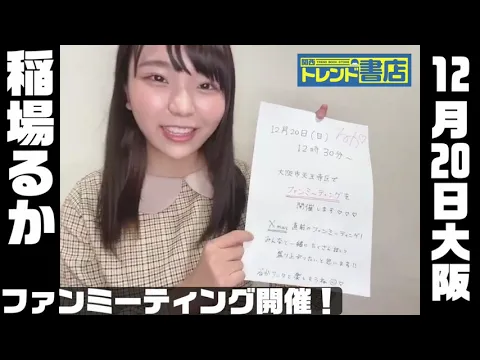 稲場るか
関西
トレンド書店
12月20日大阪
12月20日(日)
12時30分~
大阪市天王寺区で
ファンミーティングを
開催します♡♡♡
Xmas 直前のファンミーティング!
みんなと一緒にたくさん話して
盛り上がりたいと思います!!
ファンミーティング開催!